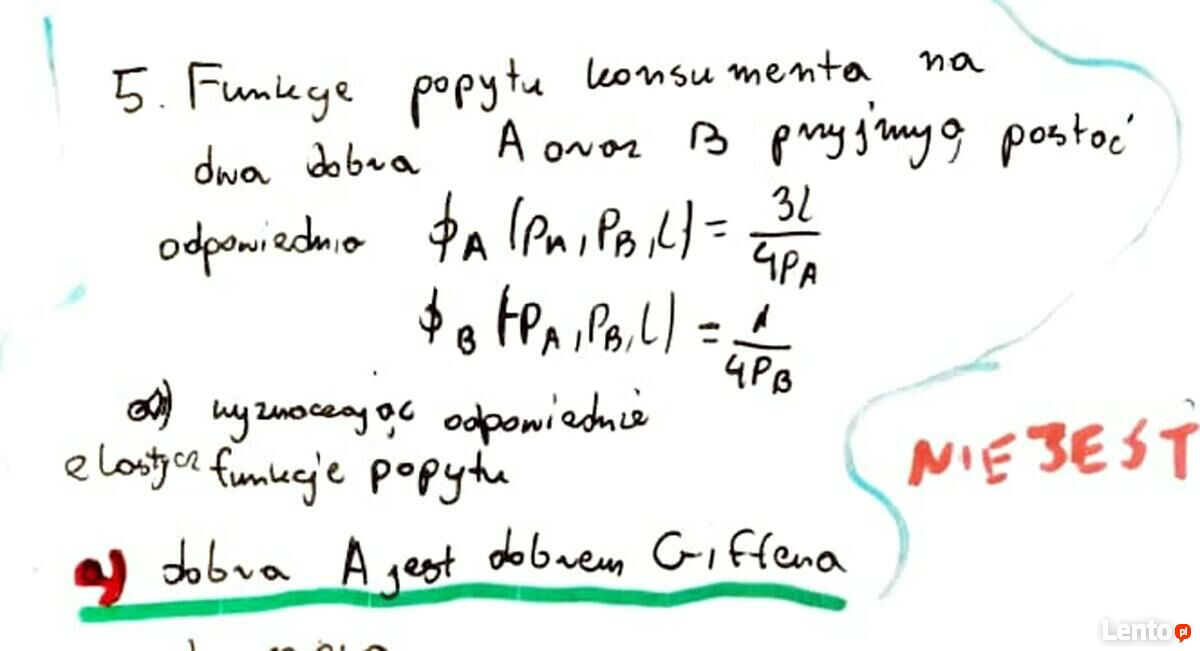 5. Funkcje popytu konsumenta na
dwa dobra A oraz B przyjmują postać
odpowiednio ϕA (PA, PB, l) = 3l/4PA
ϕB (PA, PB, l) = 1/4PB
a) wyznaczając odpowiednie
elastycz funkcje popytu
NIE JEST
a) dobra A jest dobrem Giffena
Lento.pl